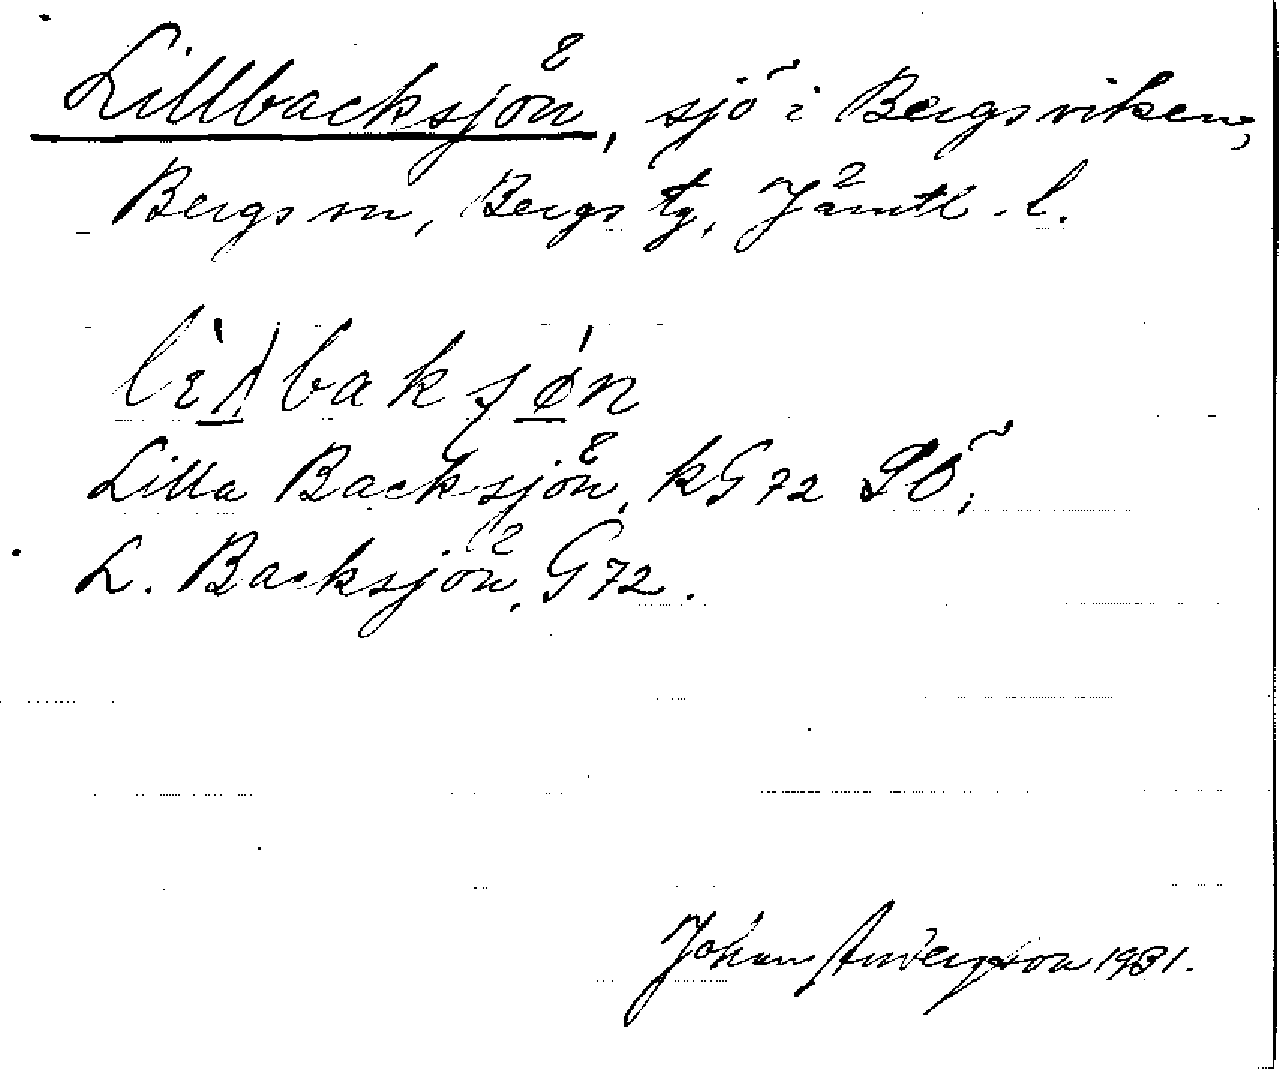 Lillbacksjön, sjö i Bergsviken,
Bergs sn, Bergs tg, Jämtl. l.
Lilla Backsjön, kG 72 SO,
L. Backsjön, G 72.
Johan Anderzon 1931.